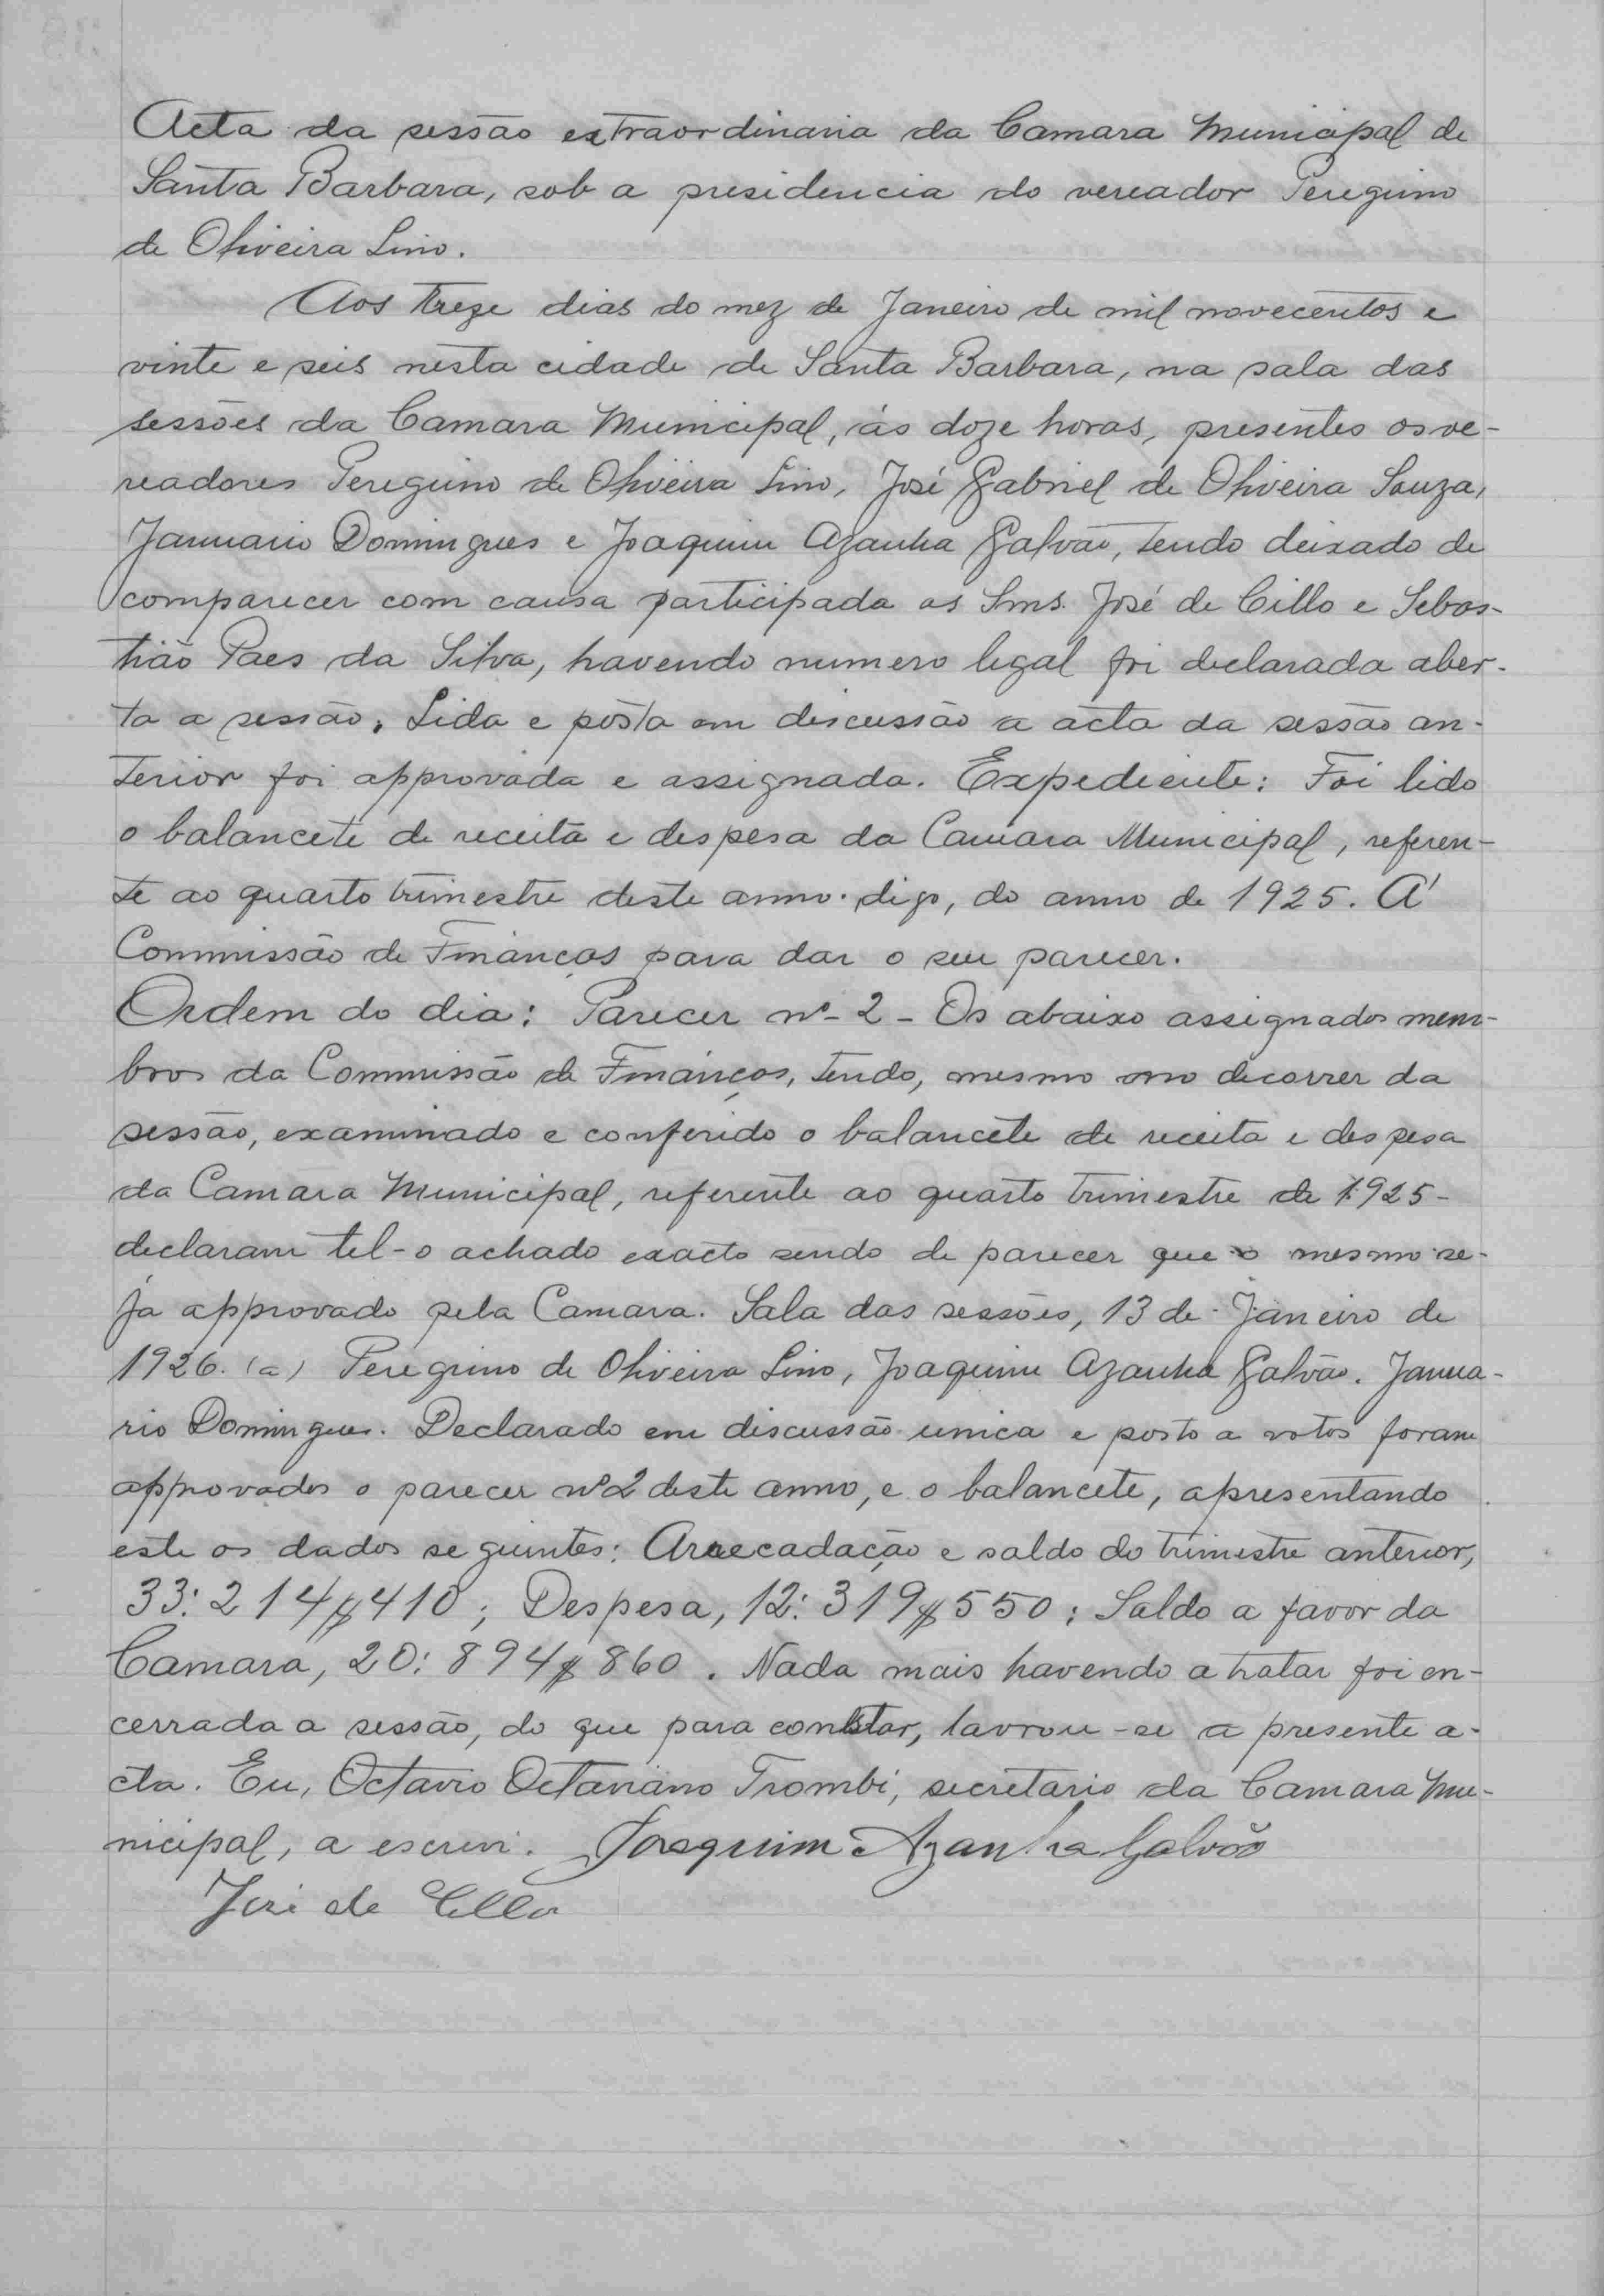 Acta da sessão extraordinaria da Camara Municipal de
Santa Barbara, sob a presidencia do vereador Peregrino
de Oliveira Lino.
Aos treze dias do mez de Janeiro de mil novecentos e
vinte e seis nesta cidade de Santa Barbara, na sala das
sessões da Camara Municipal, ás doze horas, presentes os ve-
readores Peregrino de Oliveira Lino, José Gabriel de Oliveira Souza,
Januario Domingues e Joaquim Azanha Galvão, tendo deixado de
comparecer com causa participada os Snrs. José de Cillo e Sebas-
tião Paes da Silva, havendo numero legal foi declarada aber-
ta a sessão. Lida e pósta em discussão a acta da sessão an-
terior foi approvada e assignada. Expediente: Foi lido
o balancete de receita e despesa da Camara Municipal, referen-
te ao quarto trimestre deste anno. digo, do anno de 1925. A'
Commissão de Finanças para dar o seu parecer.
Ordem do dia: Parecer nº - 2 - Os abaixo assignados mem-
bros da Commissão de Finanças, tendo, mesmo no decorrer da
sessão, examinado e conferido o balancete de receita e despesa
da Camara Municipal, referente ao quarto trimestre de 1925 -
declaram tel-o achado exacto sendo de parecer que o mesmo se-
ja approvado pela Camara. Sala das sessões, 13 de Janeiro de
1926. (a) Peregrino de Oliveira Lino, Joaquim Azanha Galvão. Janua-
rio Domingues. Declarado em discussão unica e posto a votos foram
approvados o parecer nº 2 deste anno, e o balancete, apresentando
este os dados seguintes: Arrecadação e saldo do trimestre anterior,
33:214$410; Despesa, 12:319$550; Saldo a favor da
Camara, 20:894$860. Nada mais havendo a tratar foi en-
cerrada a sessão, do que para constar, lavrou-se a presente a-
cta. Eu, Octavio Octaviano Trombi, secretario da Camara Mu-
nicipal, a escrevi. Joaquim Azanha Galvão
José de Cillo